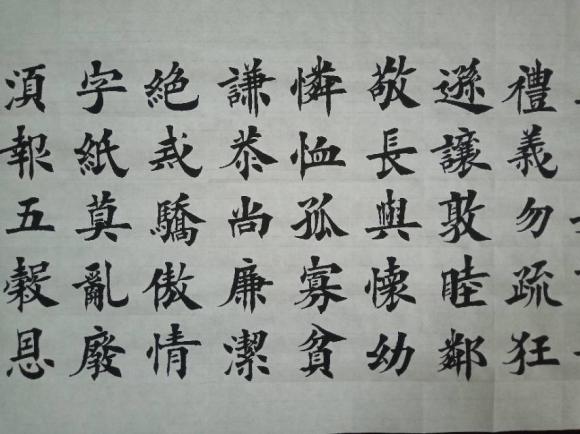 禮義勿疏狂
遜讓敦睦鄰
敬長與懷幼
憐恤孤寡貧
謙恭尚廉潔
絶戒驕傲情
字紙莫亂廢
湏報五穀恩